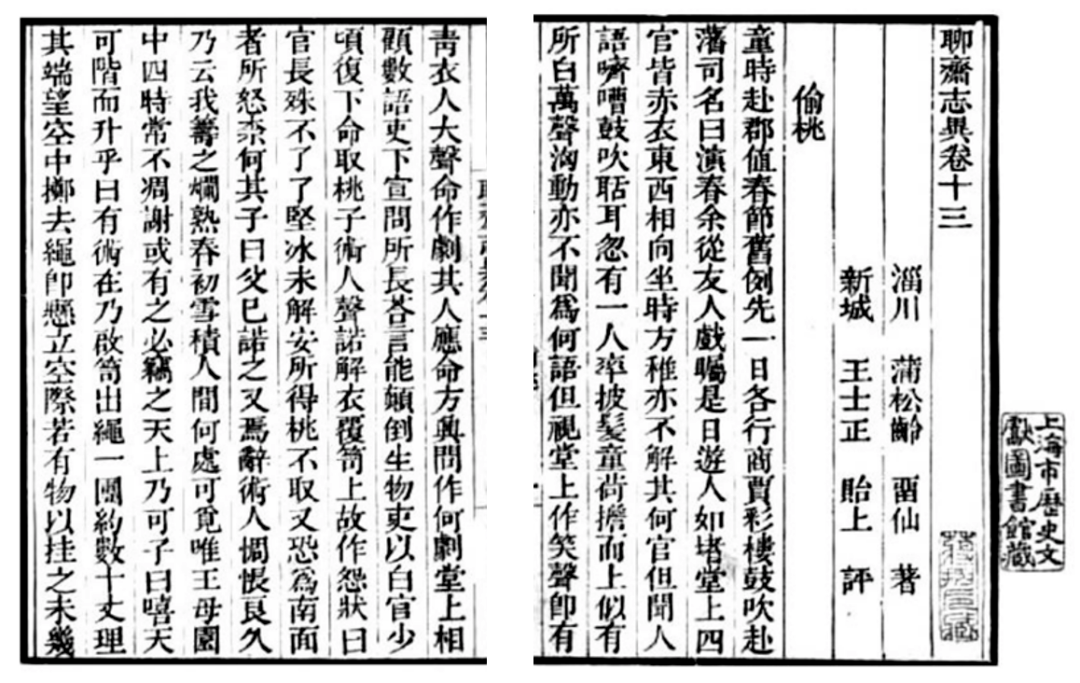 聊齋志異卷十三
淄川 蒲松齡 畱仙 著
新城 王士正 貽上 評
偷桃
童時赴郡值春節舊例先一日各行商賈彩樓鼓吹赴
藩司名曰演春余從友人戲矚是日遊人如堵堂上四
官皆赤衣東西相向坐時方稚亦不解其何官但聞人
語嚌嘈鼓吹聒耳忽有一人率披髮童荷擔而上似有
所白萬聲洶動亦不聞爲何語但視堂上作笑聲卽有
青衣人大聲命作劇其人應命方興問作何劇堂上相
顧數語吏下宣問所長荅言能顛倒生物吏以白官少
頃復下命取桃子術人聲諾解衣覆笥上故作怨狀曰
官長殊不了了堅冰未解安所得桃不取又恐爲南面
者所怒柰何其子曰父已諾之又焉辭術人惆悵良久
乃云我籌之爛熟春初雪積人間何處可覓唯王母園
中四時常不凋謝或有之必竊之天上乃可子曰嘻天
可階而升乎曰有術在乃啟笥出繩一團約數十丈理
其端望空中擲去繩卽懸立空際若有物以挂之未幾
上海市歷史文
獻圖書館藏